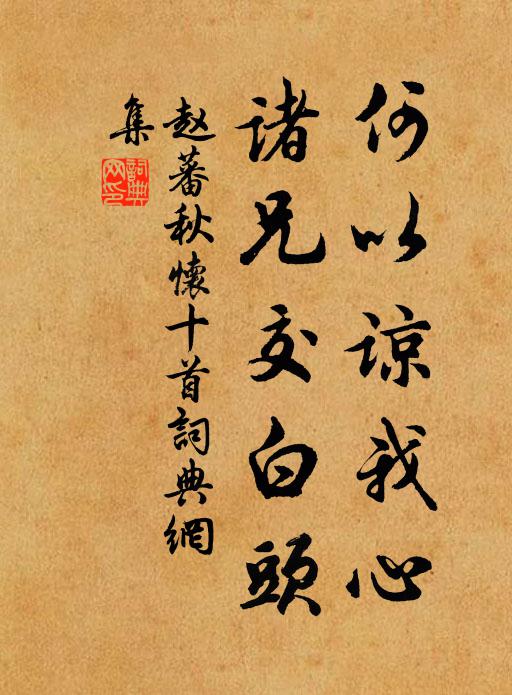 何以谅我心
诸兄交白頭
赵蕃秋懷十首詞典網
集
詞典网印